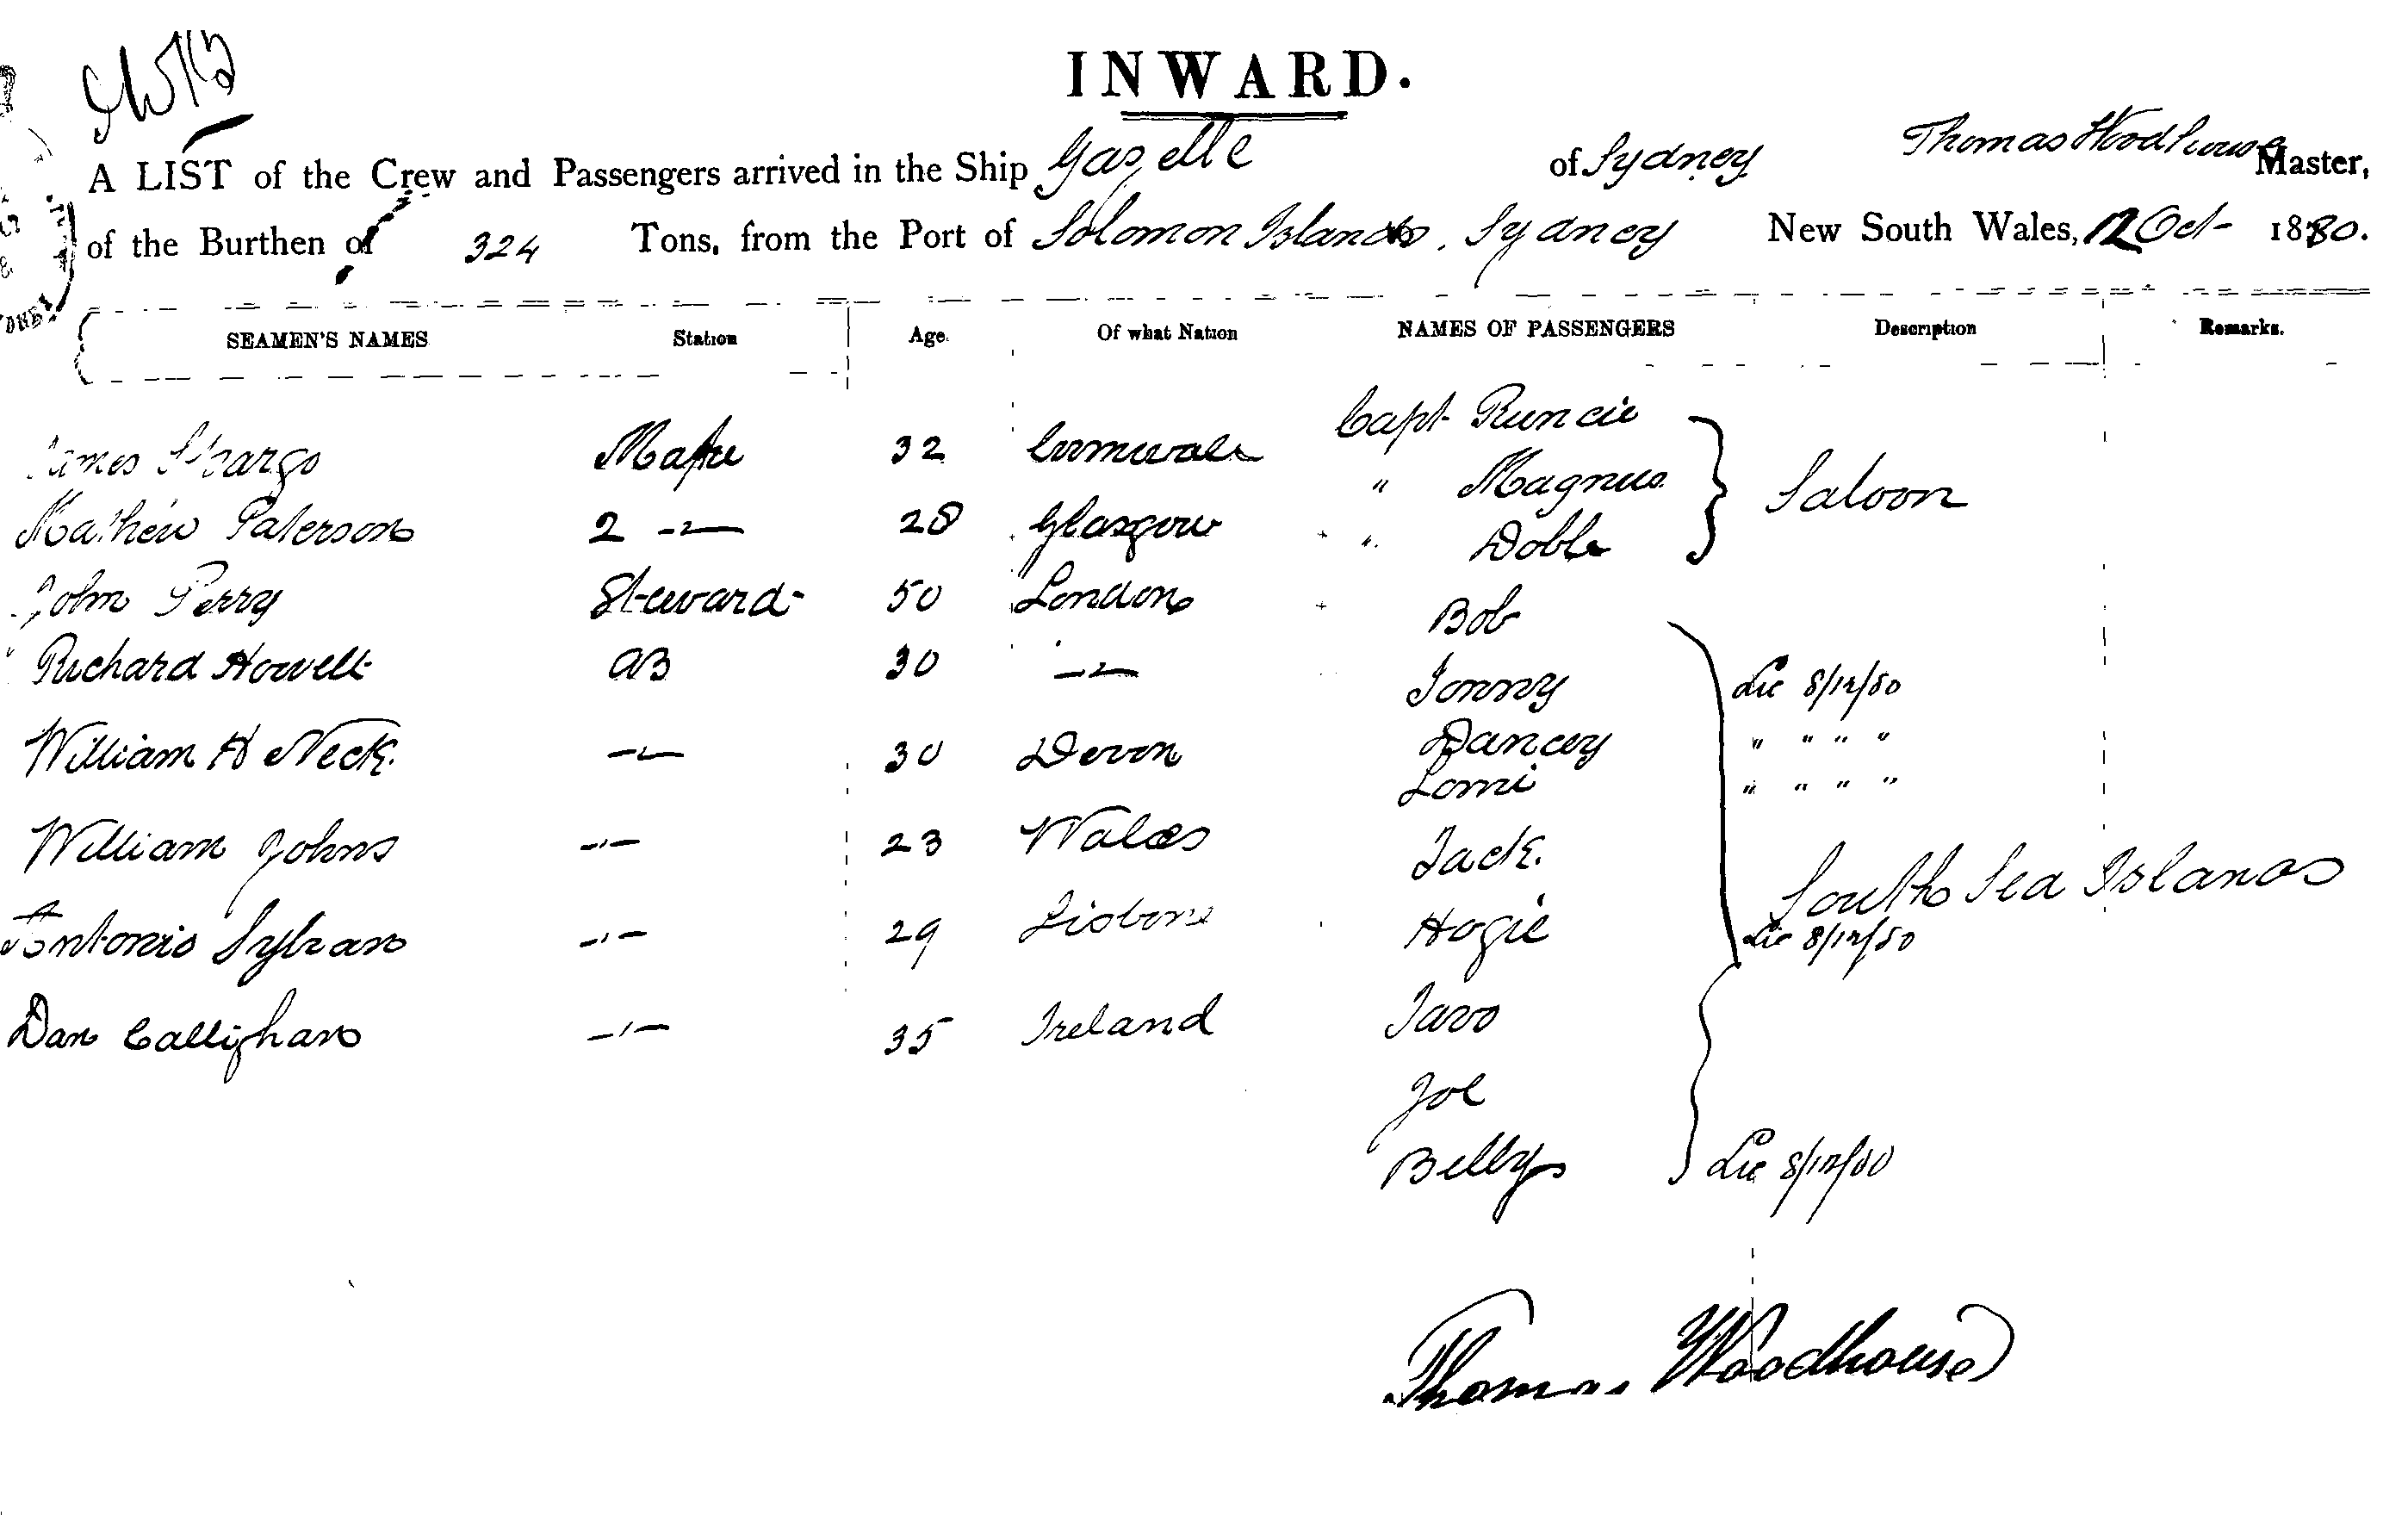 INWARD.
A LIST of the Crew and Passengers arrived in the Ship Gazelle of Sydney Thomas Woodhouse Master,
of the Burthen of 324 Tons, from the Port of Solomon Islands, Sydney New South Wales, 12 Oct 1880.
SEAMEN'S NAMES Station Age. Of what Nation NAMES OF PASSENGERS Description Remarks.
James Mate 32 Cornwall Capt Runcie
" Magnus Saloon
Mathew Paterson 2 -"- 28 Glasgow " Doble
John Perry Steward 50 London Bob
Richard Howell AB 30 -"- Tommy Lie 8/12/80
William H Neck. -"- 30 Devon Dancey " " " "
Lomi " " " "
William Johns -"- 23 Wales Jack. South Sea Islands
Antonio Sylvan -"- 29 Lisbon Hogie Lie 8/12/80
Dan Callighan -"- 35 Ireland Tavo
Joe
Billy Lie 8/12/80
Thomas Woodhouse